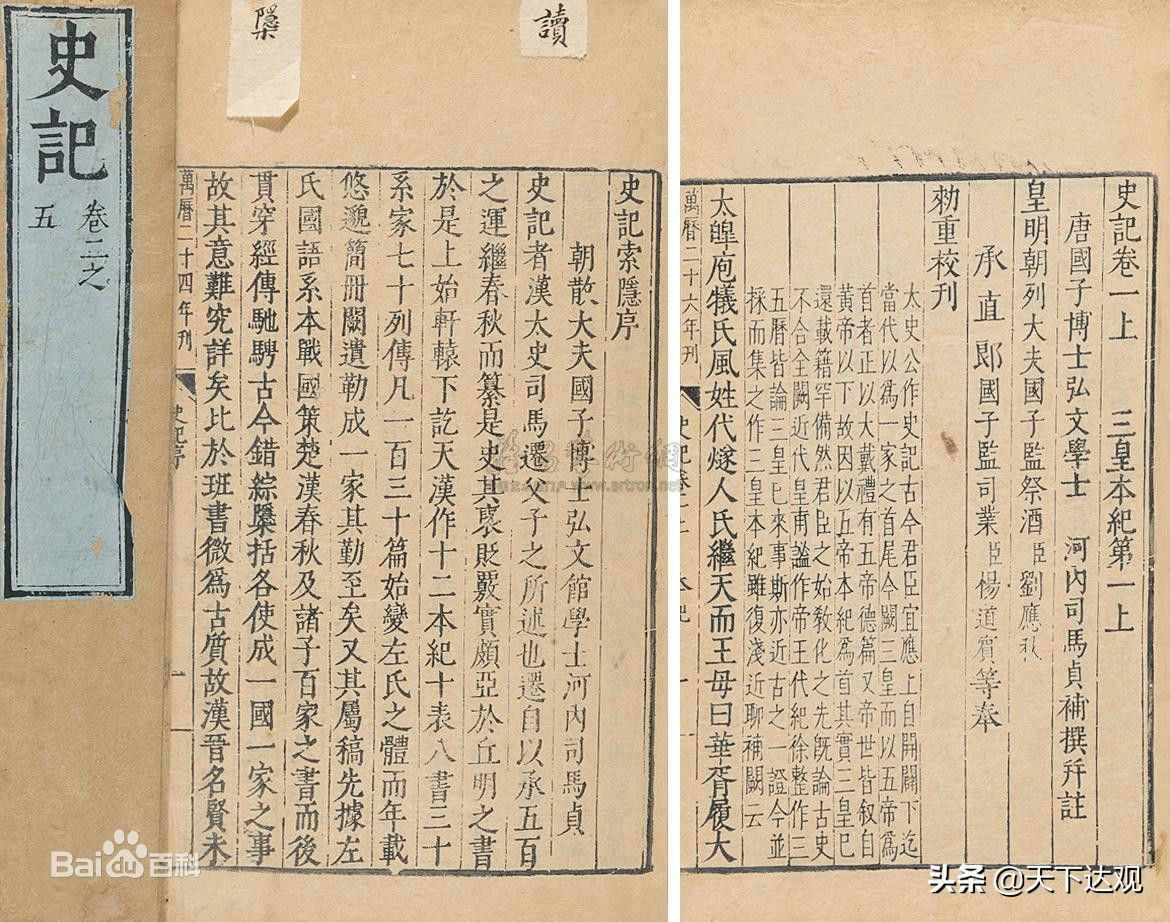 史記
卷二之
五
檃
讀
史記索隱序
朝散大夫國子博士弘文館學士河內司馬貞
史記者漢太史司馬遷父子之所述也遷自以承五百
之運繼春秋而纂是史其裒貶覈實頗亞於丘明之書
於是上始軒轅下訖天漢作十二本紀十表八書三十
系家七十列傳凡一百三十篇始變左氏之體而年載
悠邈簡冊闕遺勒成一家其勤至矣又其屬稿先據左
氏國語系本戰國策楚漢春秋及諸子百家之書而後
貫穿經傳馳騁古今錯綜檃括各使成一國一家之事
故其意難究詳矣比於班書微爲古質故漢晉名賢未
萬曆二十四年刊
史記序
一
史記卷一上 三皇本紀第一上
唐國子博士弘文學士 河內司馬貞補撰幷註
皇明朝列大夫國子監祭酒臣劉應秋
承直郎國子監司業臣楊道賓等奉
勑重校刊
太史公作史記古今君臣宜應上自開闢下迄
當代以爲一家之首尾今闕三皇而以五帝爲
首者正以大戴禮有五帝德篇又帝世皆叙自
黃帝以下故因以五帝本紀爲首其實三皇已
還載籍罕備然君臣之始敎化之先旣論古史
不合全闕近代皇甫謐作帝王代紀徐整作三
五曆皆論三皇已來事斯亦近古之一證今並
採而集之作三皇本紀雖復淺近聊補闕云
太皥庖犧氏風姓代燧人氏繼天而王母曰華胥履大
萬曆二十六年刊
Bai百科
头条 @天下达观